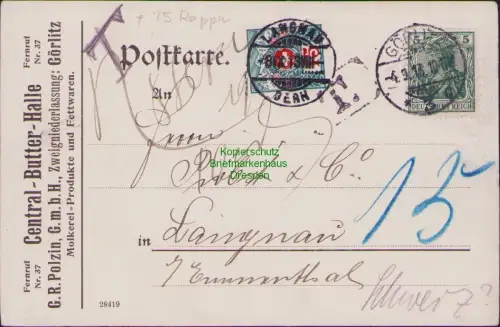 T
+ 15 Rappen
Postkarte.
An
Fernruf Nr. 37
Central-Butter-Halle
Fernruf Nr. 37
G. R. Polzin, G. m. b. H., Zweigniederlassung: Görlitz
Molkerei-Produkte und Fettwaren.
LANGNAU
BERN
T.
GÖRLITZ
5
DEUTSCHES REICH
Kopierschutz
Briefmarkenhaus
Dresden
& Co.
15
in
Langnau
i/Emmenthal
Schweiz?
28419